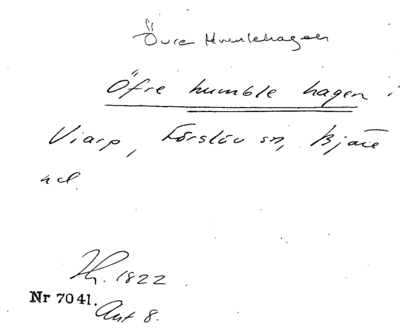 Övre Humlehagen
Öfre humble hagen i
Viarp, Förslöv sn, Bjäre
hd.
1822
Nr 7041.
Akt 8.